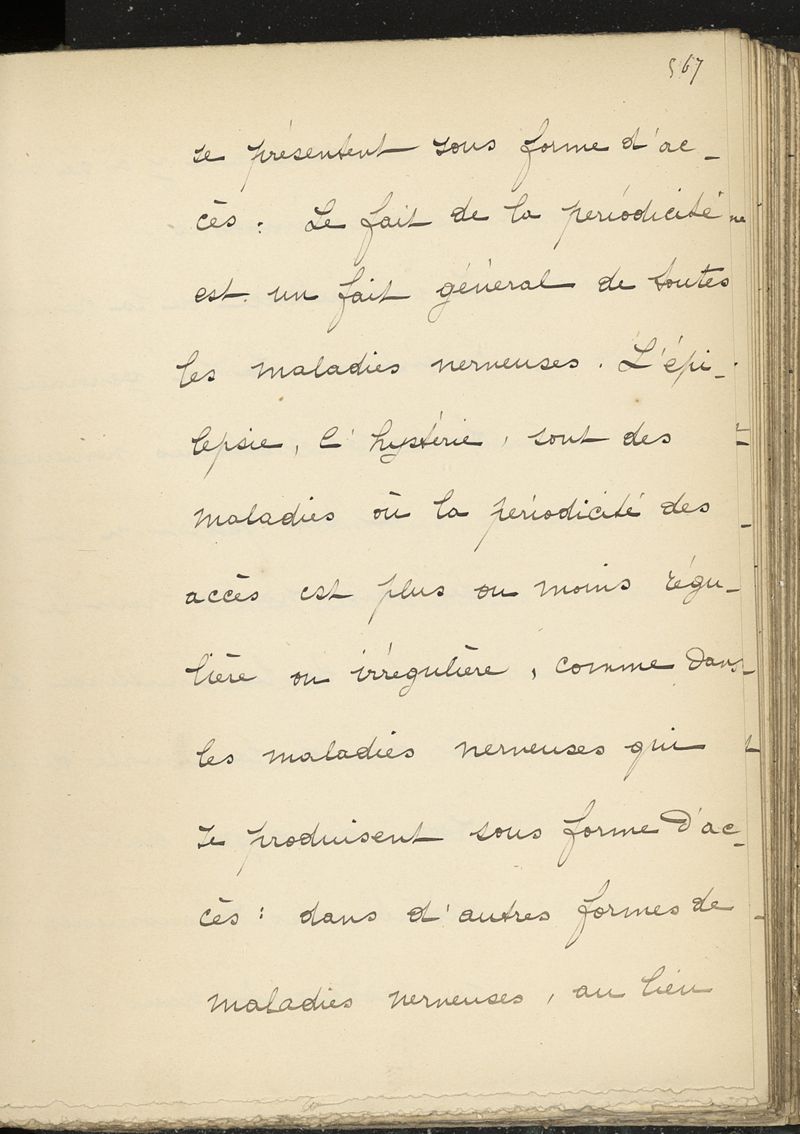 567
se présentent sous forme d'ac-
cès. Le fait de la périodicité
est un fait général de toutes
les maladies nerveuses. L'épi-
lepsie, l'hystérie, sont des
maladies où la périodicité des
accès est plus ou moins régu-
lière ou irrégulière, comme dans
les maladies nerveuses qui
se produisent sous forme d'ac-
cès : dans d'autres formes de
maladies nerveuses, au lieu